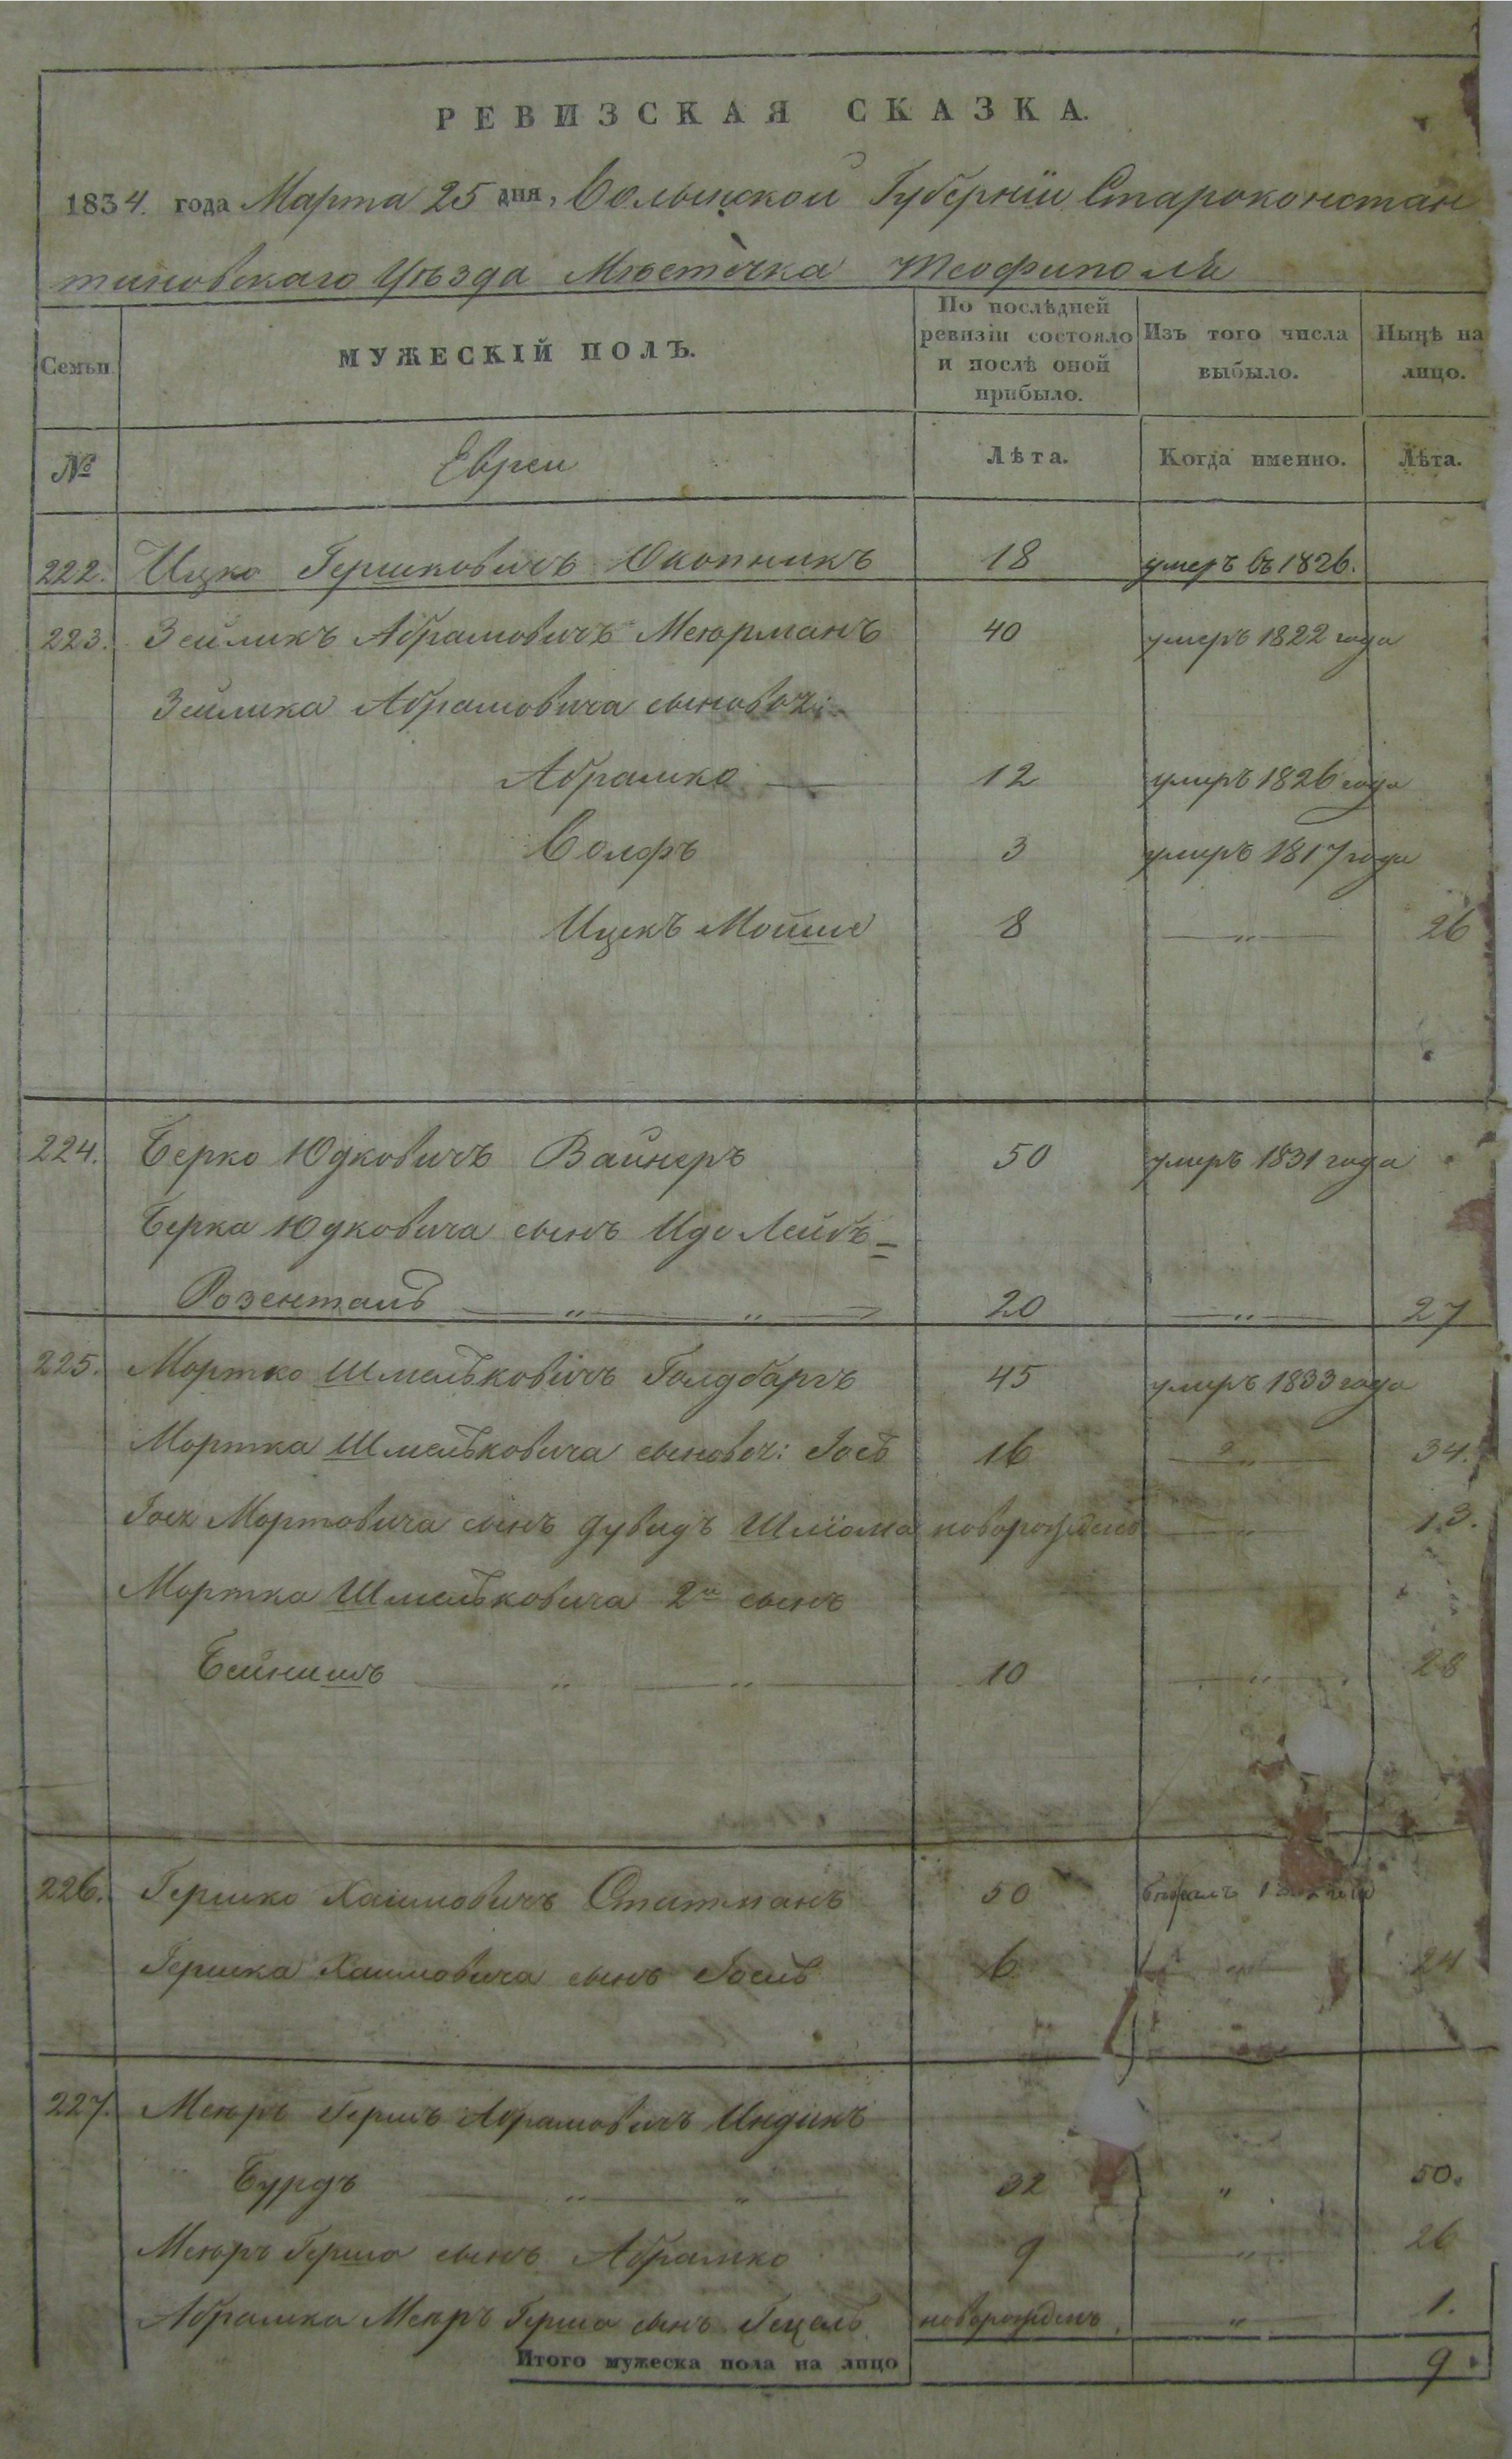 РЕВИЗСКАЯ СКАЗКА.
1834. года Марта 25 дня, Волынской Губерніи Староконстан
тиновскаго Уѣзда Мѣстечка Теофиполя
Семьи МУЖЕСКІЙ ПОЛЪ. По послѣдней ревизіи состояло и послѣ оной прибыло. Изъ того числа выбыло. Нынѣ на лицо.
№ Евреи Лѣта. Когда именно. Лѣта.
222. Ицко Гершковичъ Окопникъ 18 умеръ въ 1826.
223. Зейликъ Абрамовичъ Меюрманъ 40 умеръ 1822 года
Зейлика Абрамовича сыновья:
Абрамко 12 умеръ 1826 года
Волфъ 3 умеръ 1817 года
Ицекъ Мошше 8 " 26
224. Берко Юдковичъ Вайнеръ 50 умеръ 1831 года
Берка Юдковича сынъ Иде Лейбъ
Розенталь " " 20 " 27
225. Мортко Шмельковичъ Голдбаргъ 45 умеръ 1833 года
Мортка Шмельковича сыновья: Іось 16 " 34.
Мортовича сынъ Дувидъ Шліома новорожденъ " 13.
Мортка Шмельковича 2й сынъ
Бейнишъ " " 10 " 28
226. Гершко Хаимовичъ 50
Гершка Хаимовича сынъ 6 24
227. Меюръ Гершъ Абрамовичъ Индикъ
Бурдъ " " 32 " 50.
Меюръ Герша сынъ Абрамко 9 " 26
Абрамка Меюръ Герша сынъ Гецель новорожденъ " 1.
Итого мужеска пола на лицо 9